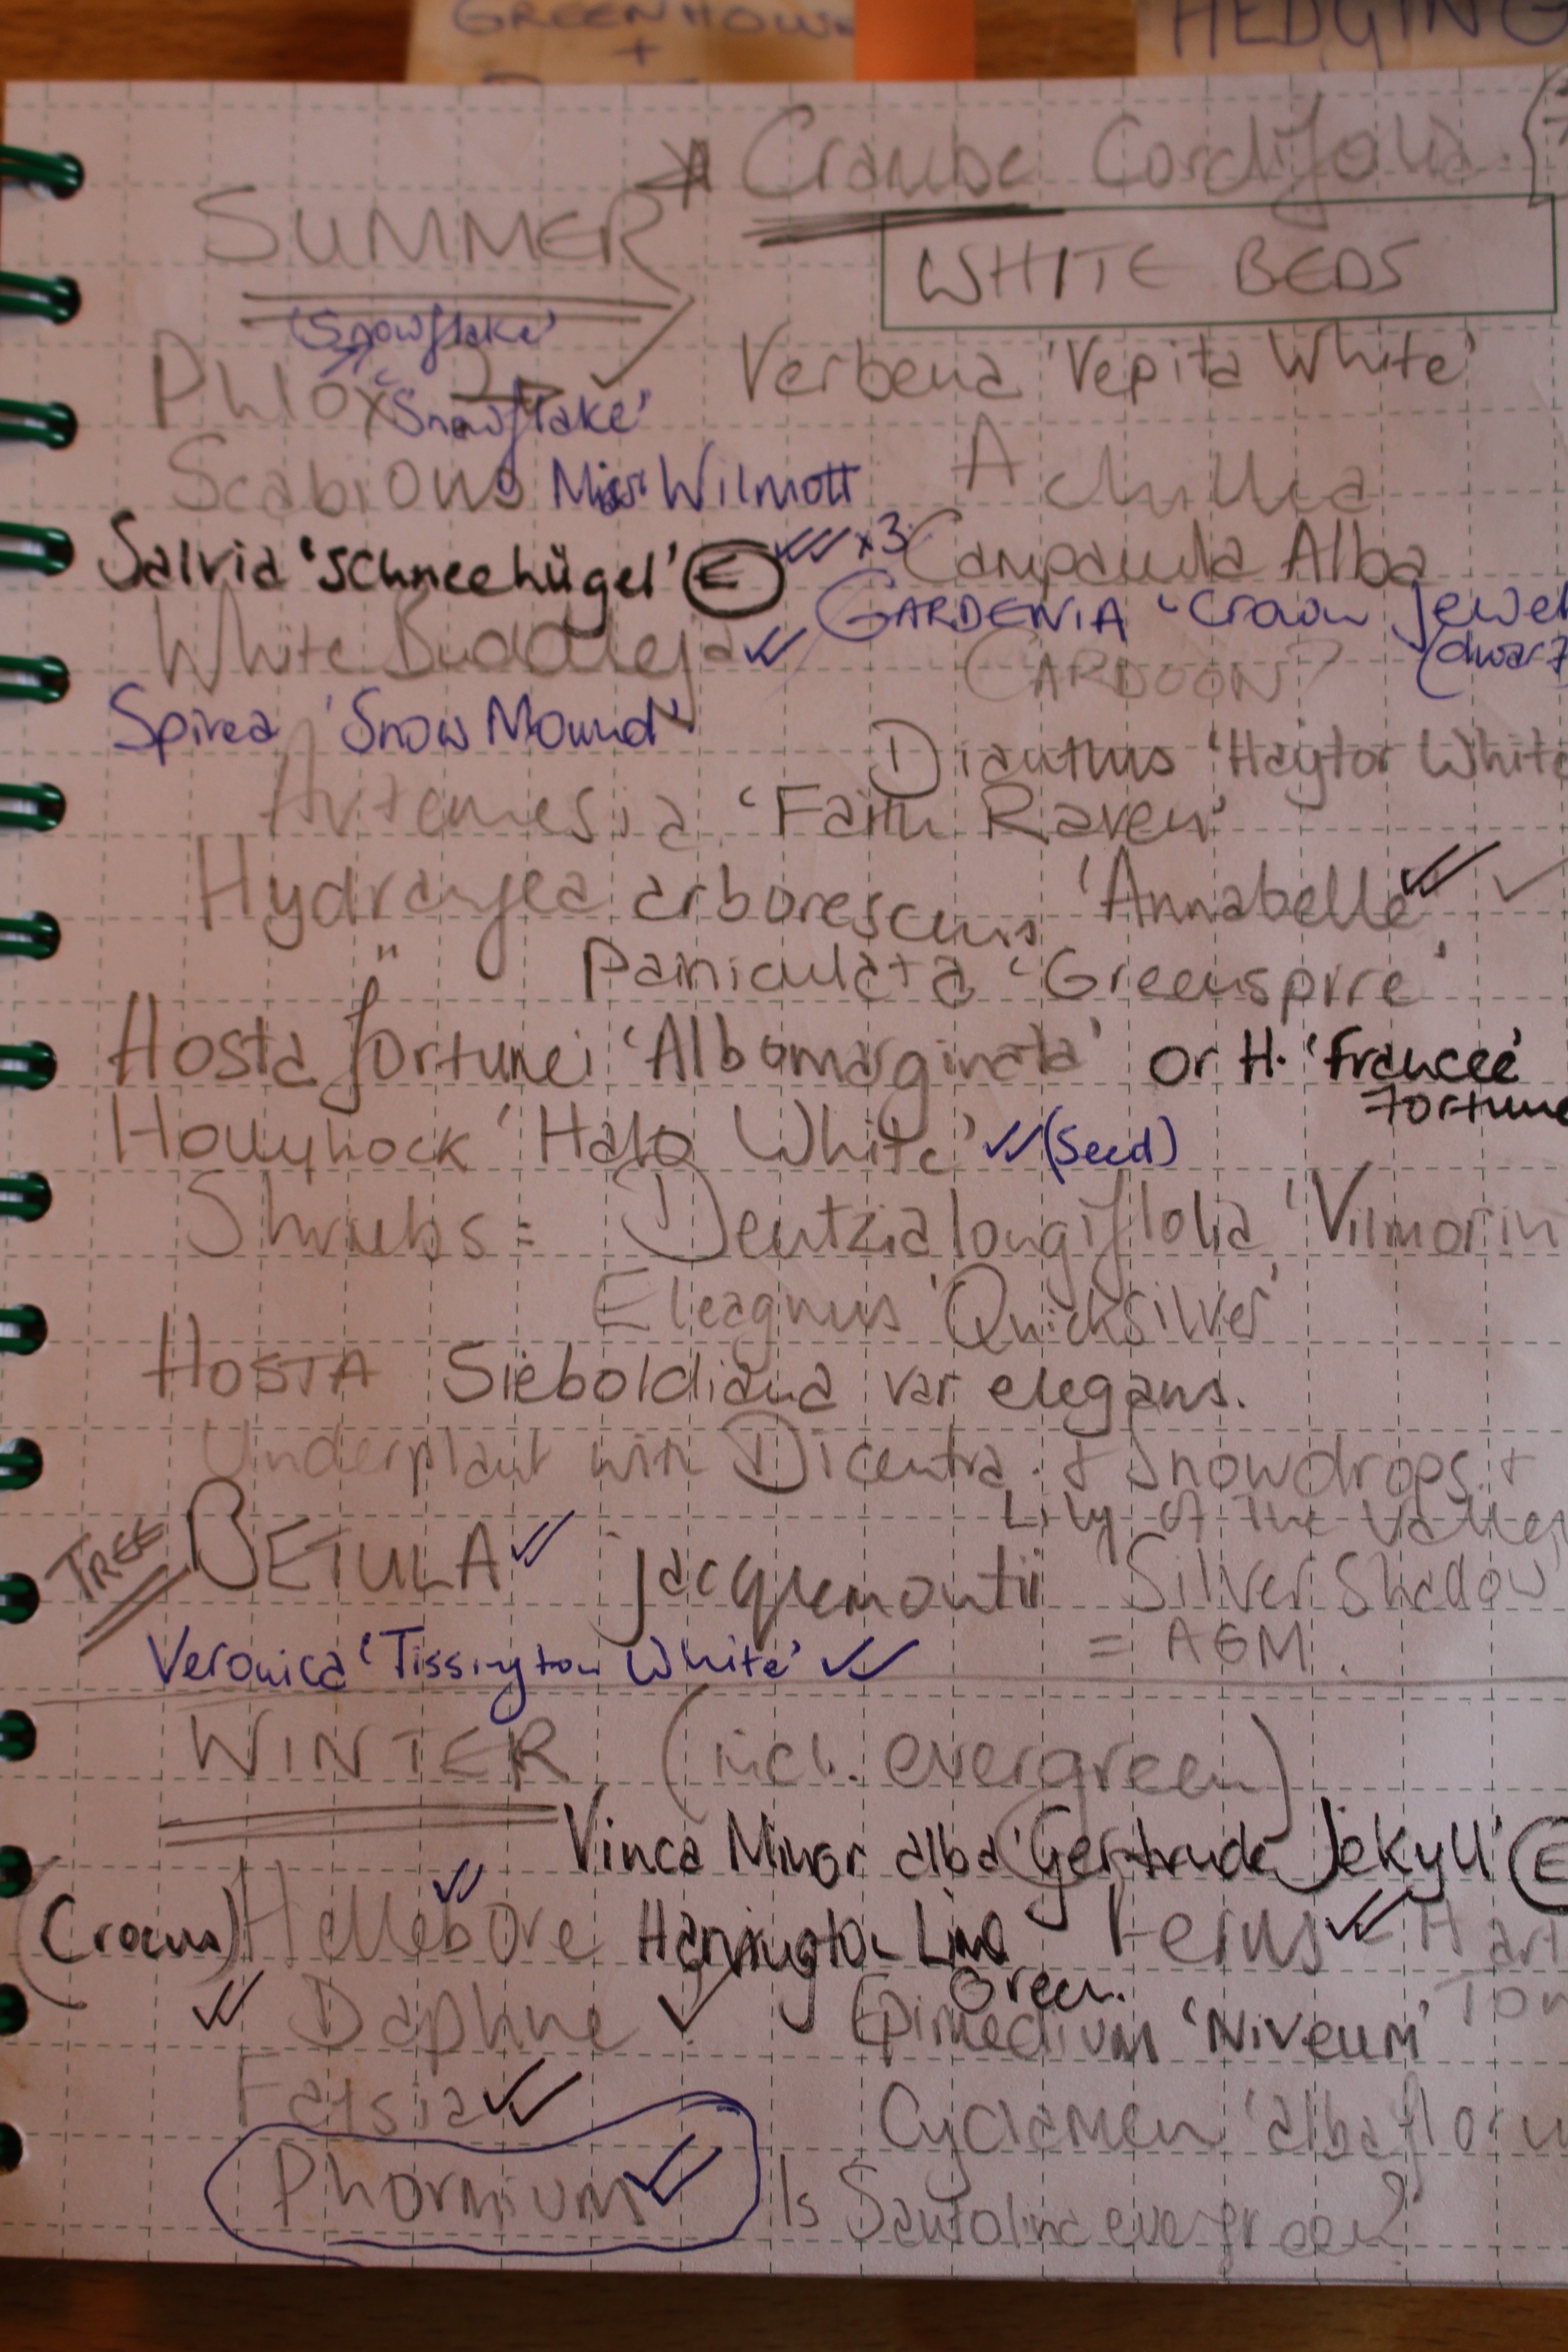 GREENHOUSE
+
HEDGING
Crambe Cordifolia
SUMMER
WHITE BEDS
'Snowflake'
Phlox 'Snowflake'
Verbena 'Vepita White'
Scabious Miss Wilmott
Achillia
Salvia 'Schneehügel' E x3
Campanula Alba
White Buddleja
GARDENIA 'Crown Jewel
(dwarf
CARDOON?
Spirea 'Snow Mound'
Dianthus 'Haytor White
Artemesia 'Faith Raven'
Hydrangea arborescens 'Annabelle'
" Paniculata 'Greenspire'
Hosta fortunei 'Albomarginata' or H. 'francee'
fortune
Hollyhock 'Halo White' (Seed)
Shrubs: Deutzia longiflolia 'Vilmorin
Eleagnus 'Quicksilver'
HOSTA Sieboldiana var elegans.
Underplant with Dicentra + Snowdrops +
Lily of the Valley
TREE BETULA jacquemontii 'Silver Shadow'
= AGM.
Veronica 'Tissington White'
WINTER (incl. evergreen)
Vinca Minor alba 'Gertrude Jekyll' E
(Crocus) Hellebore Harrington Lime Green.
Ferns - Hart
Ton
Daphne
Epimedium 'Niveum'
Fatsia
Cyclamen 'albaflorum
Phormium
Is Santolina evergreen?